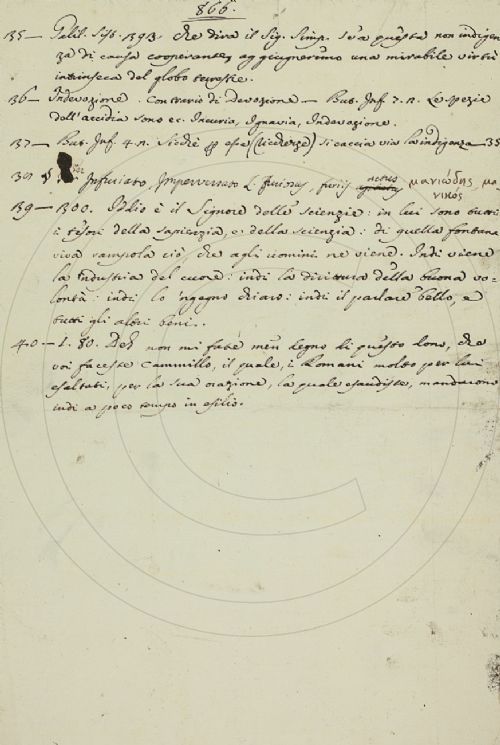 866.
35 — Galil. Sist. 393. Che dirà il Sig. Simp. se a questa non indigen
za di causa cooperante, aggiugneremo una mirabile virtù
intrinseca del globo terrestre.
36 — Indevozione. Contrario di Devozione — But. Inf. 7. Le spezie
dell'accidia sono ec. Incuria, Ignavia, Indevozione.
37 — But. Inf. 4. Sicchè esse (ricchezze) si caccia via la indigenza — 35
Infuriato, Imperversato L. furiosus, furiis actus μανιώδης, μα
νικός
39 — 300. Iddio è il Signore delle scienzie: in lui sono tutti
i tesori della sapienzia, e della scienzia: di quella fontana
viva rampolla ciò, che agli uomini ne viene. Indi viene
la industria del cuore: indi la dirittura della buona vo-
lontà: indi lo 'ngegno chiaro: indi il parlare bello, e
tutti gli altri beni..
40 — I. 80. Deh non mi fate men degno di questo dono, che
voi faceste Cammillo, il quale, i Romani molto per lui
esaltati, per la sua orazione, la quale esaudiste, mandarono
indi a poco tempo in esilio.